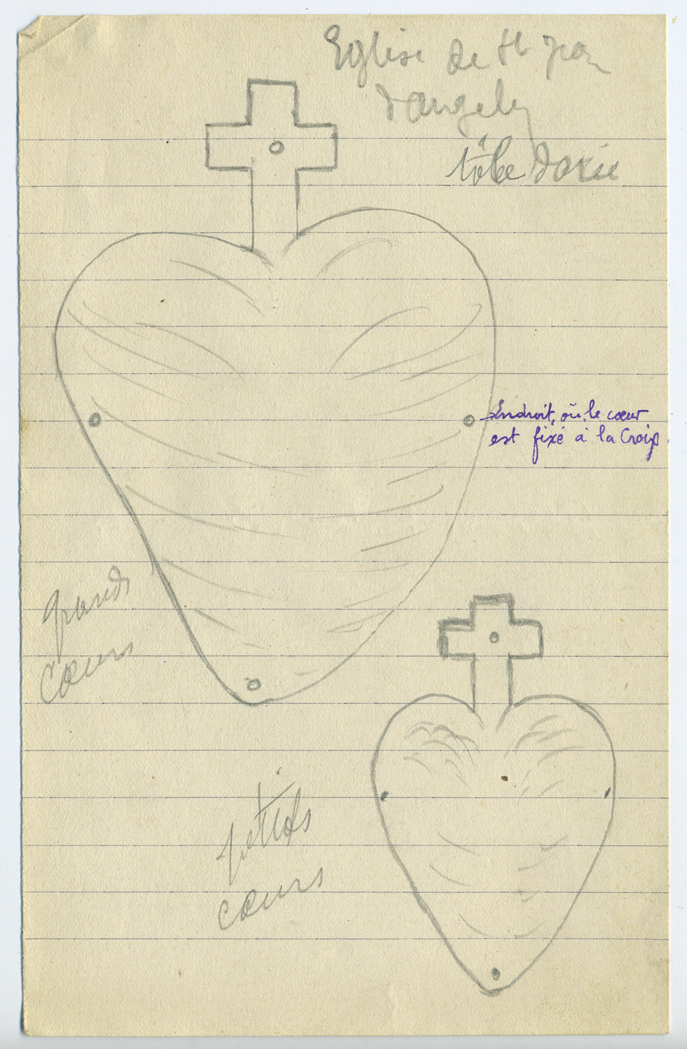 Eglise de St Jean
d'angely
tôle dorée
Endroit, où le cœur
est fixé à la Croix.
grands
cœurs
petits
cœurs